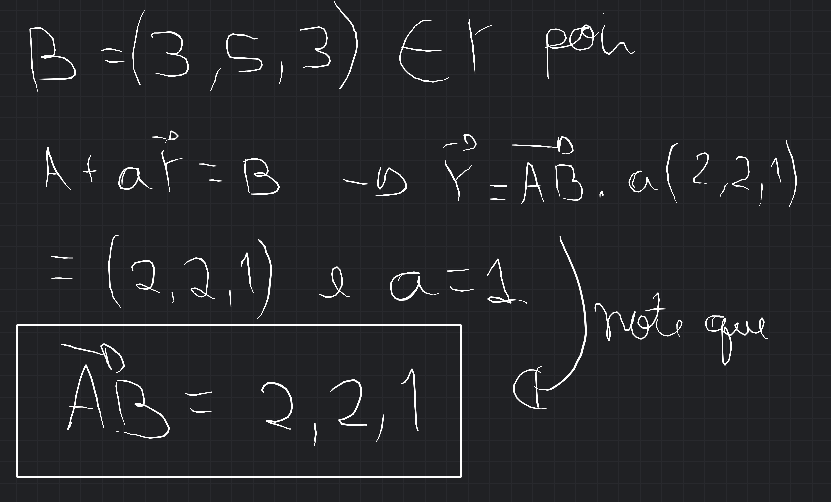 B = (3, 5, 3) ∈ r pois
A + a r⃗ = B → r⃗ = A⃗B⃗ . a(2, 2, 1)
= (2, 2, 1) e a = 1
note que
A⃗B⃗ = 2, 2, 1